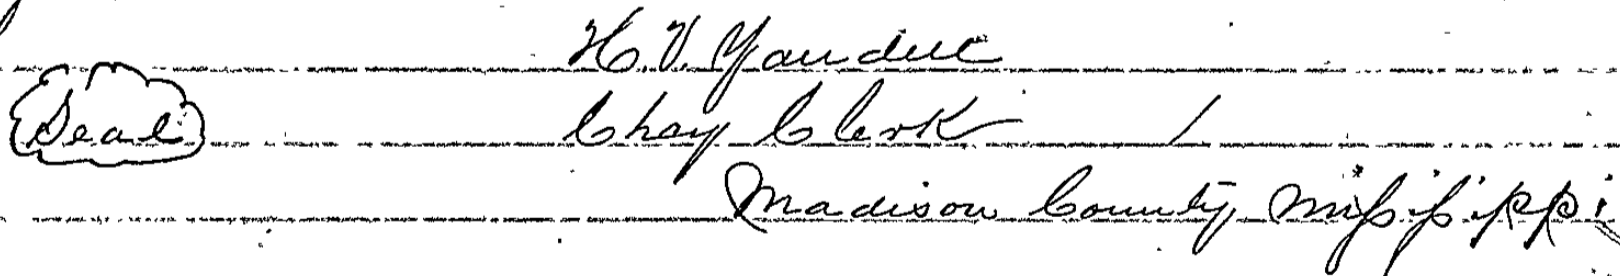 H. V. Yandell
Seal Chcy Clerk
Madison County, Mississippi